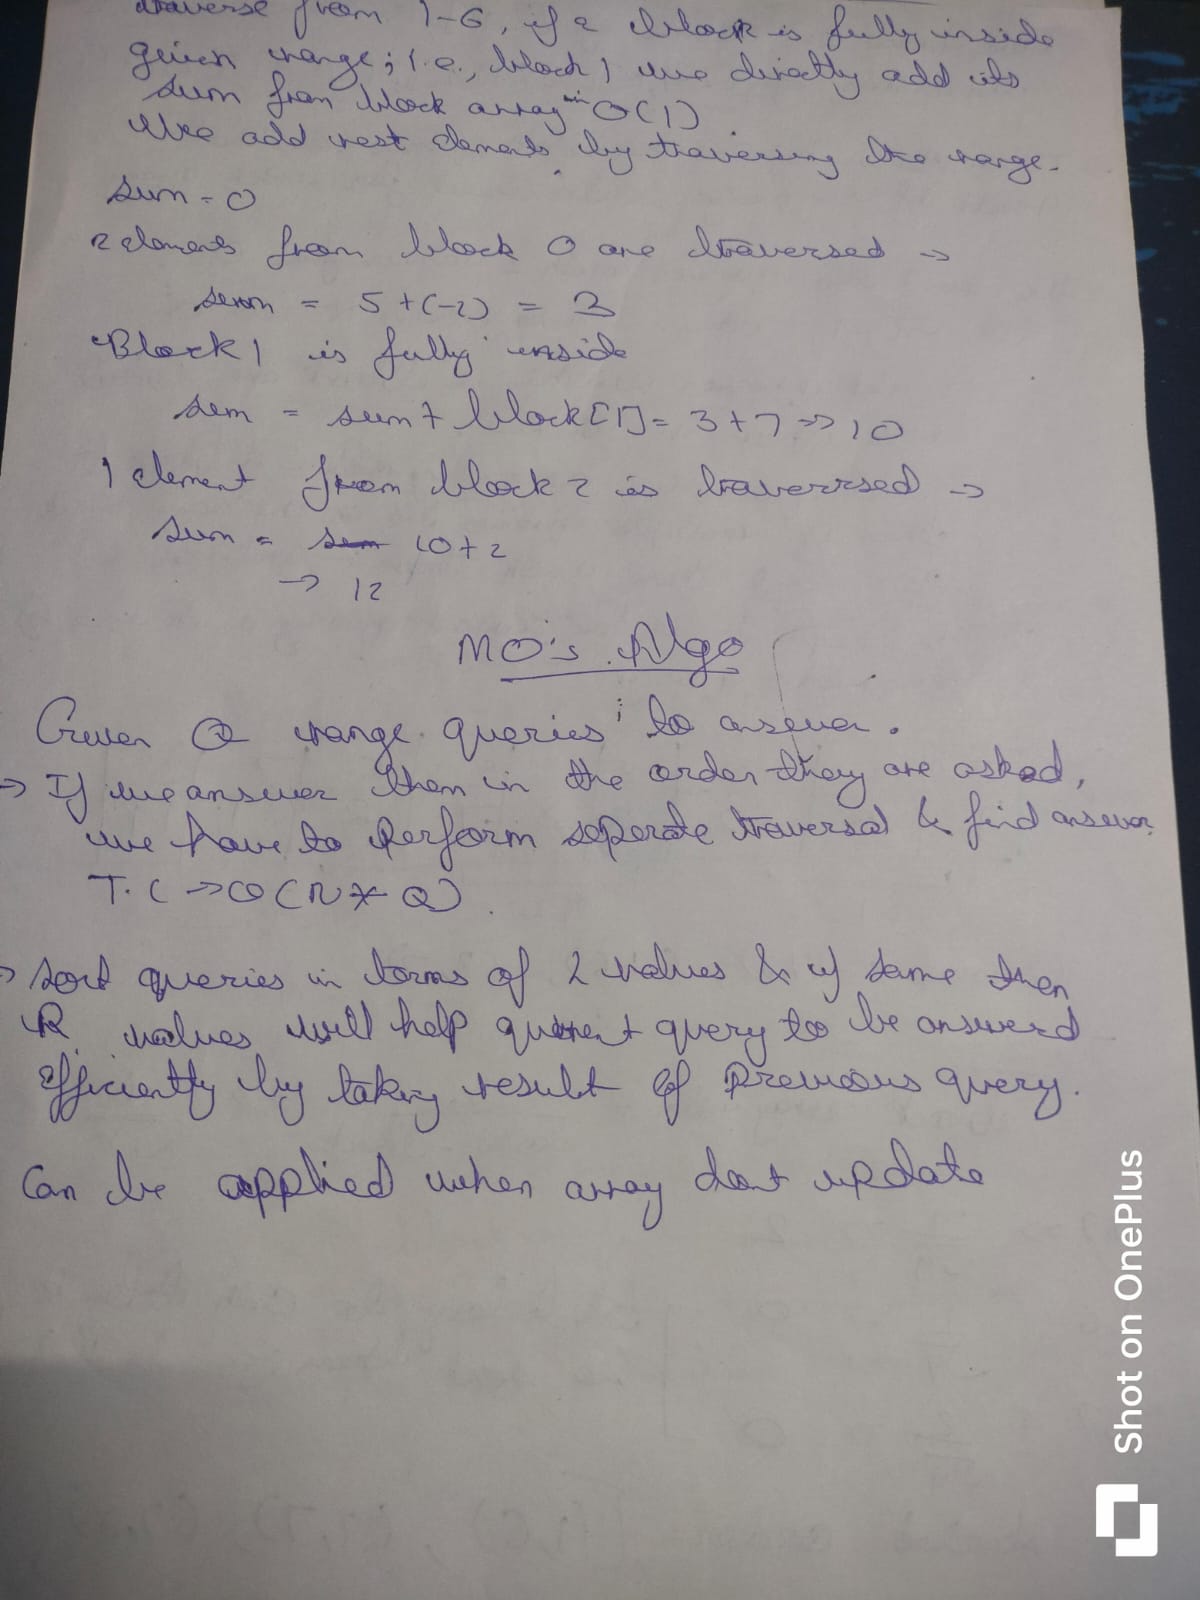 traverse from 1-6, if a block is fully inside
given range; i.e., block 1 we directly add its
sum from block array in O(1)
We add rest elements by traversing the range.
sum = 0
2 elements from block 0 are traversed →
sum = 5 + (-2) = 3
Block 1 is fully inside
sum = sum + block[1] = 3 + 7 => 10
1 element from block 2 is traverrsed →
sum = sum 10 + 2
→ 12
MO's Algo
Given Q range queries to answer.
→ If we answer them in the order they are asked,
we have to perform seperate traversal & find answer.
T.C → O(N * Q).
→ Sort queries in terms of L values & if same then
R values will help current query to be answered
efficiently by taking result of previous query.
Can be applied when array dont update
Shot on OnePlus